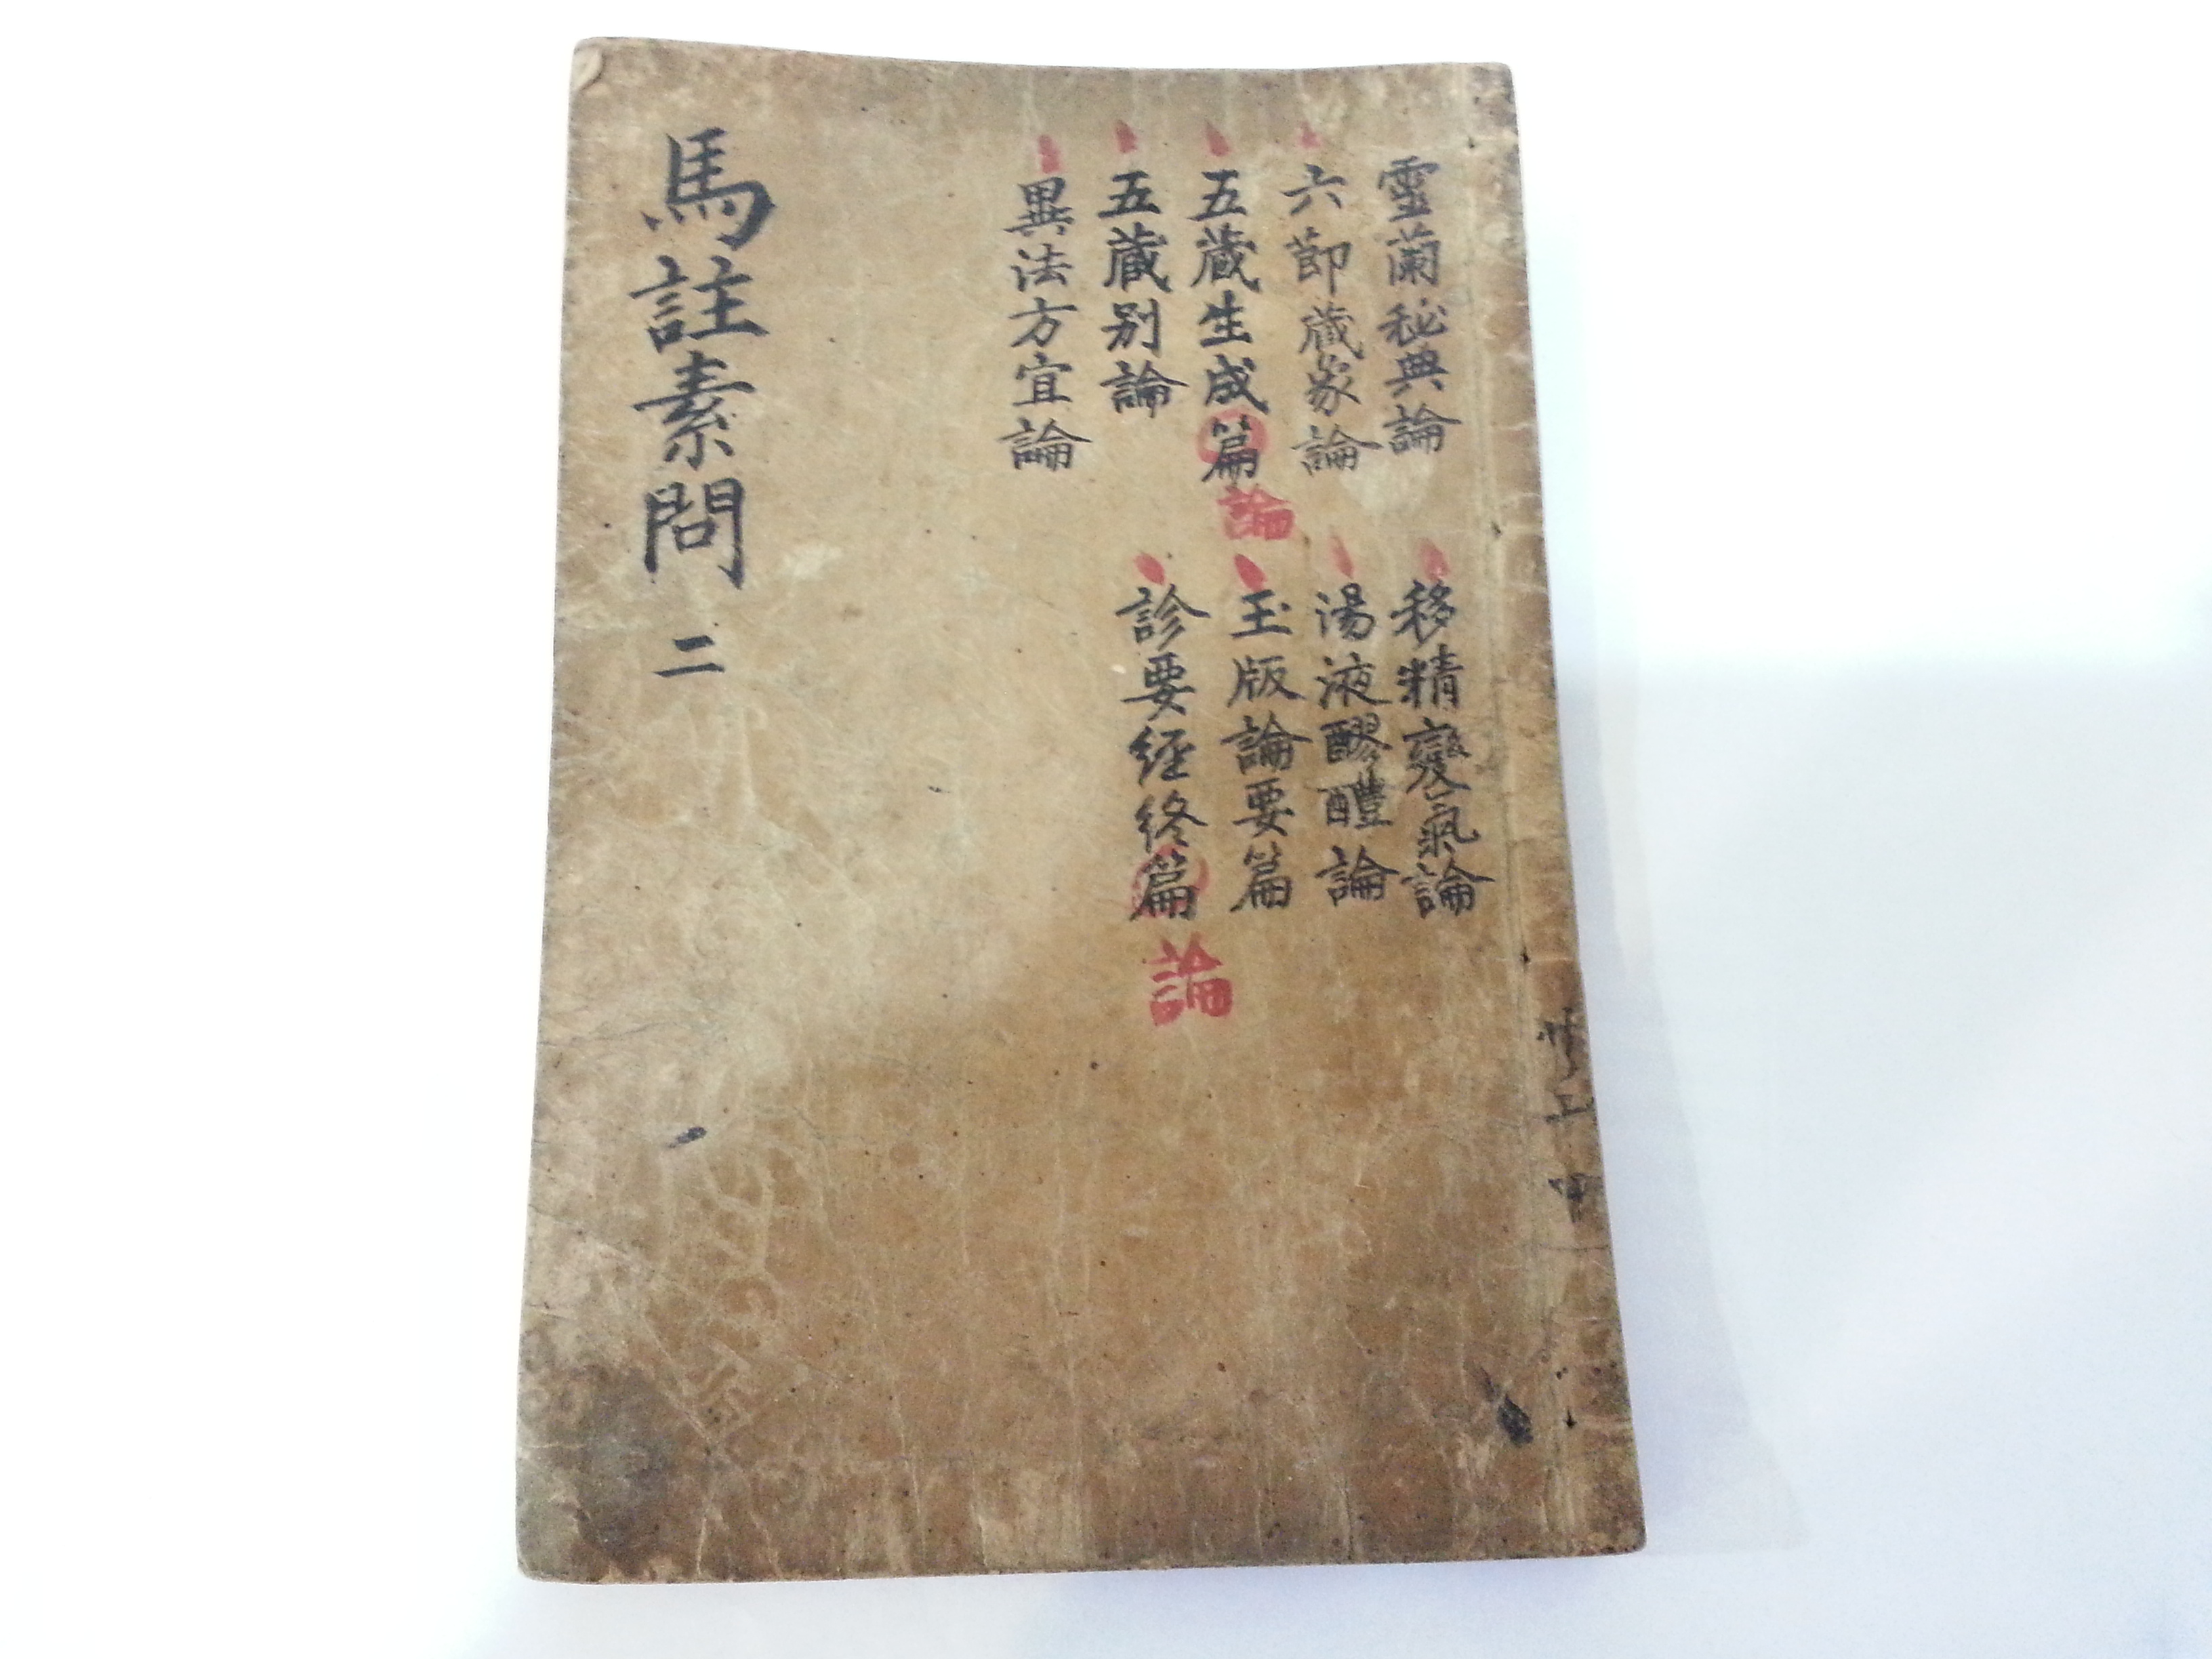 靈蘭秘典論
六節蔵象論
五蔵生成篇論
五蔵别論
異法方宜論
移精變氣論
湯液醪醴論
玉版論要篇
診要経終篇論
馬註素問 二